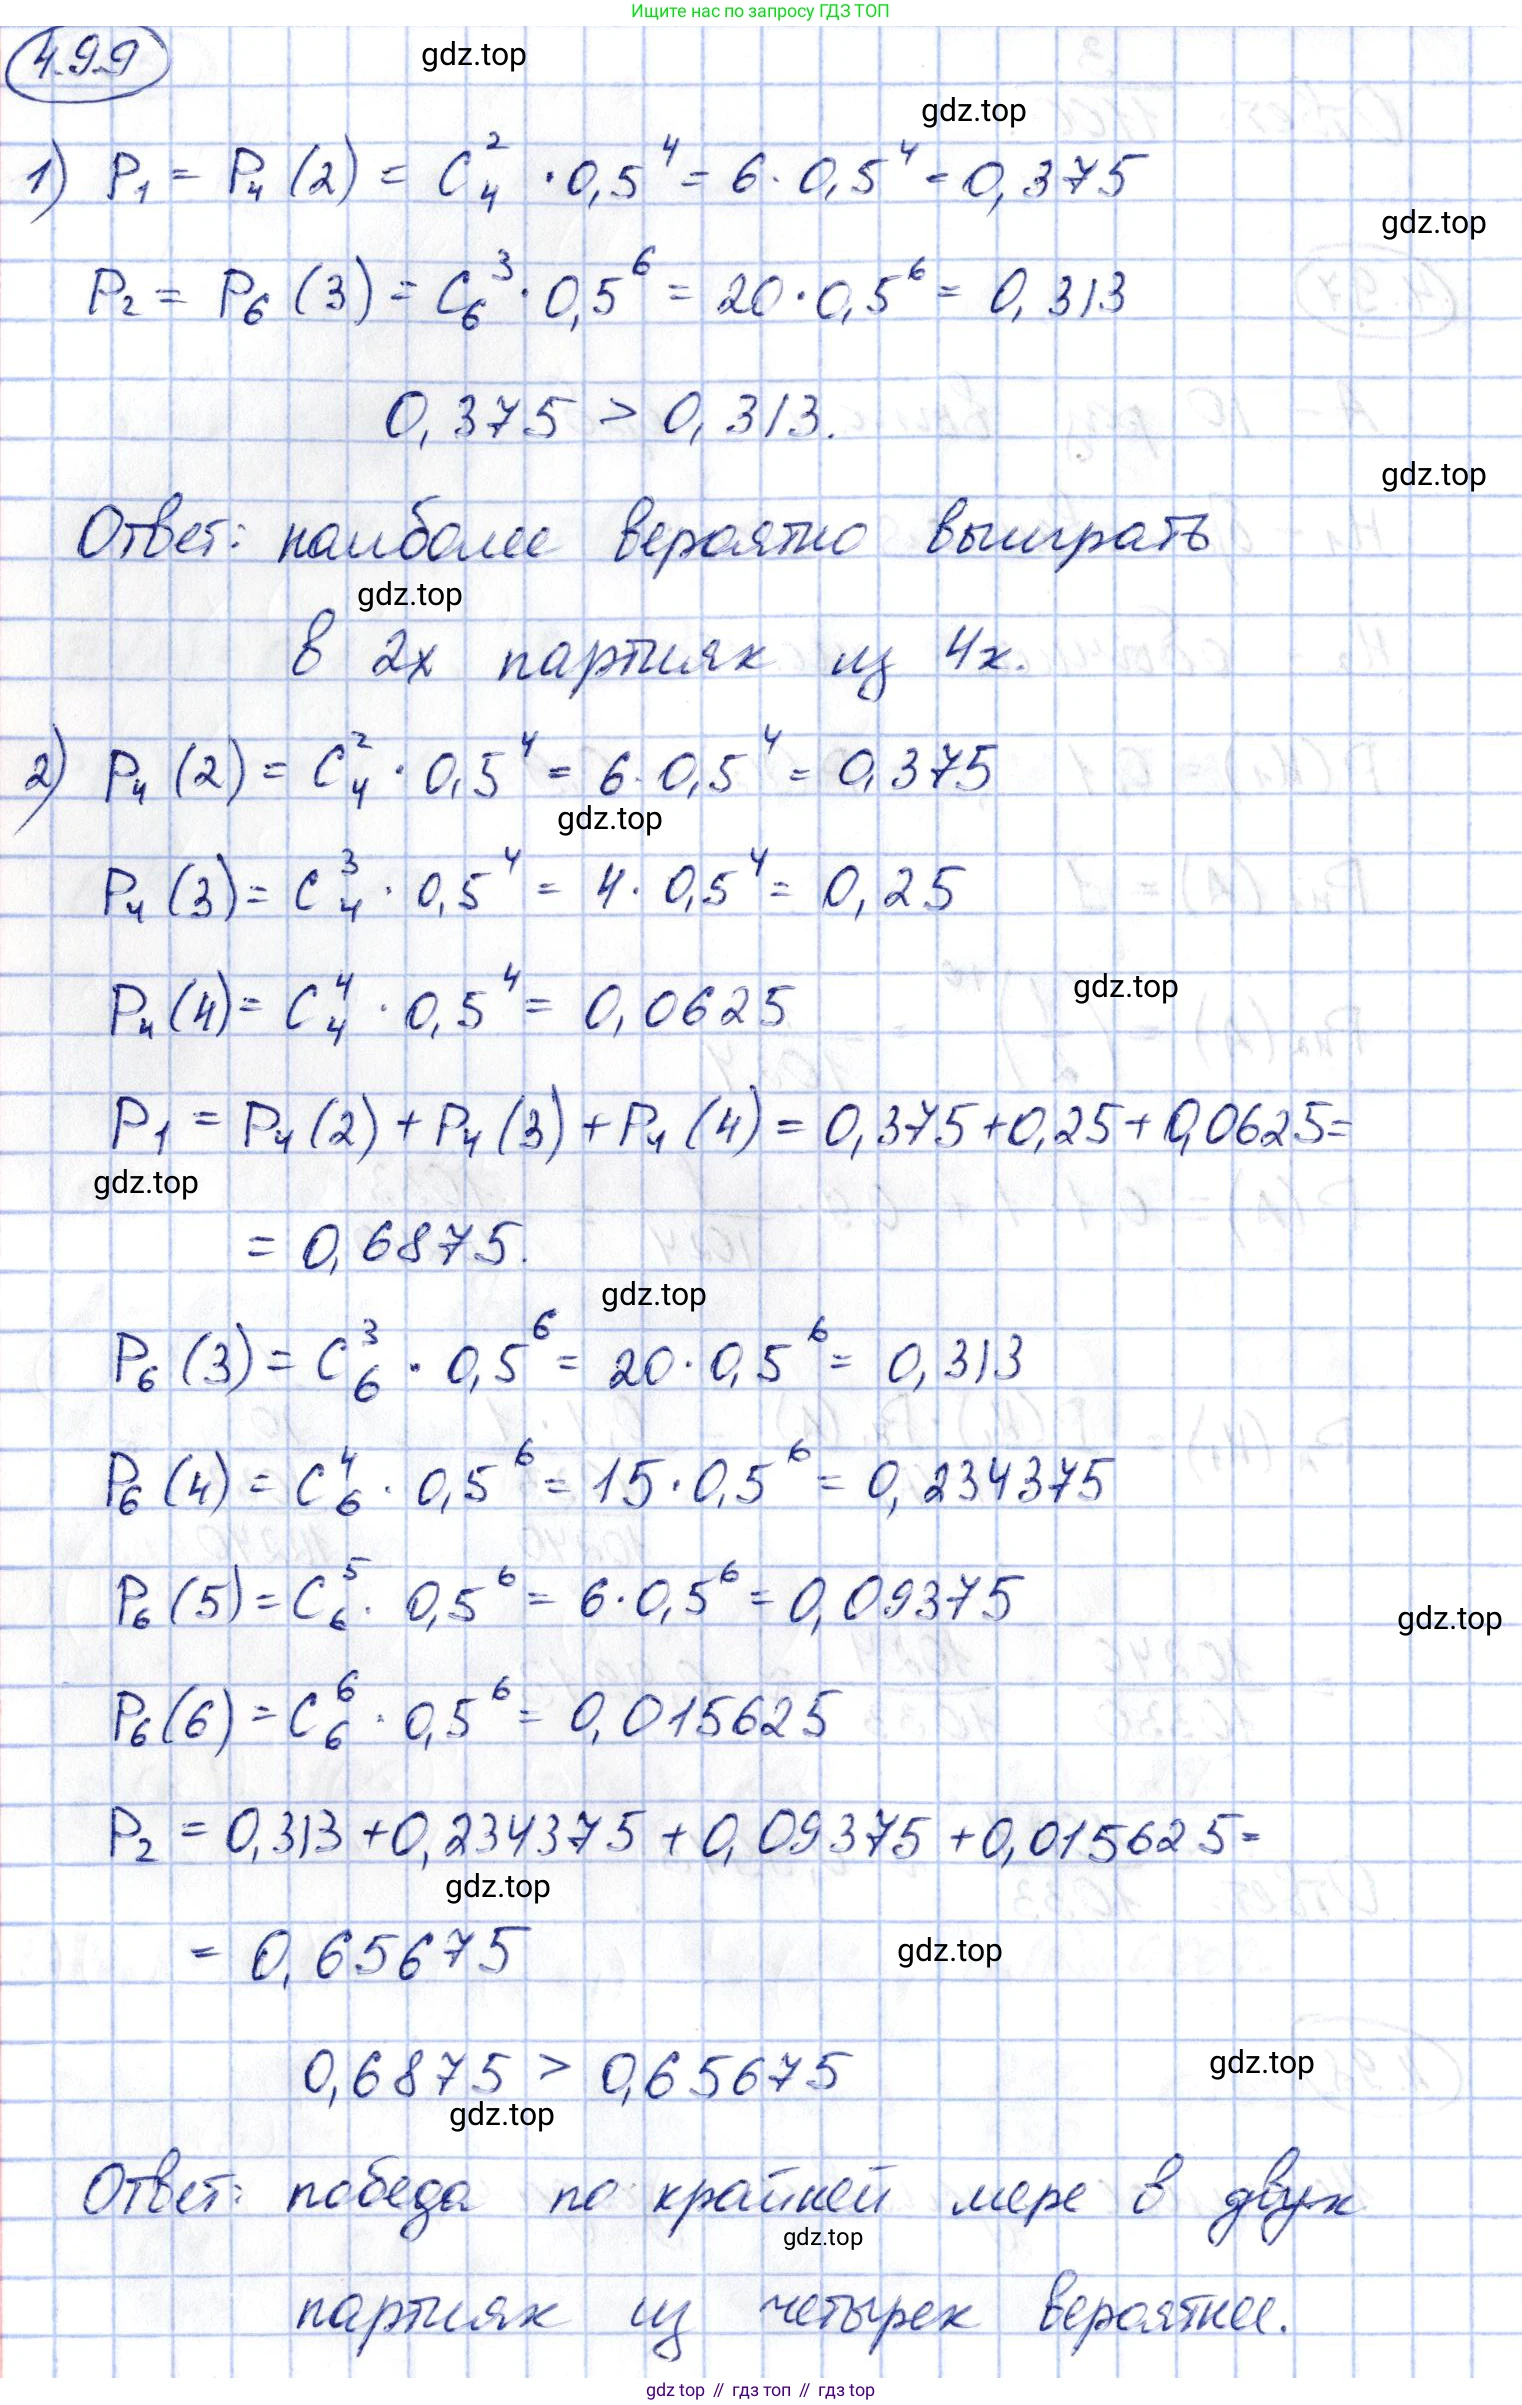 Ищите нас по запросу ГДЗ ТОП
4.99
gdz.top
gdz.top
1) P₁ = P₄ (2) = C₄² · 0,5⁴ = 6 · 0,5⁴ = 0,375
gdz.top
P₂ = P₆ (3) = C₆³ · 0,5⁶ = 20 · 0,5⁶ = 0,313
0,375 > 0,313.
gdz.top
Ответ: наиболее вероятно выиграть
gdz.top
в 2х партиях из 4х.
2) P₄ (2) = C₄² · 0,5⁴ = 6 · 0,5⁴ = 0,375
gdz.top
P₄ (3) = C₄³ · 0,5⁴ = 4 · 0,5⁴ = 0,25
gdz.top
P₄ (4) = C₄⁴ · 0,5⁴ = 0,0625
P₁ = P₄ (2) + P₄ (3) + P₄ (4) = 0,375 + 0,25 + 0,0625 =
gdz.top
= 0,6875.
gdz.top
P₆ (3) = C₆³ · 0,5⁶ = 20 · 0,5⁶ = 0,313
P₆ (4) = C₆⁴ · 0,5⁶ = 15 · 0,5⁶ = 0,234375
P₆ (5) = C₆⁵ · 0,5⁶ = 6 · 0,5⁶ = 0,09375
gdz.top
P₆ (6) = C₆⁶ · 0,5⁶ = 0,015625
P₂ = 0,313 + 0,234375 + 0,09375 + 0,015625 =
gdz.top
= 0,65675
gdz.top
0,6875 > 0,65675
gdz.top
gdz.top
Ответ: победа по крайней мере в двух
gdz.top
партиях из четырех вероятнее.
gdz top // гдз топ // гдз top